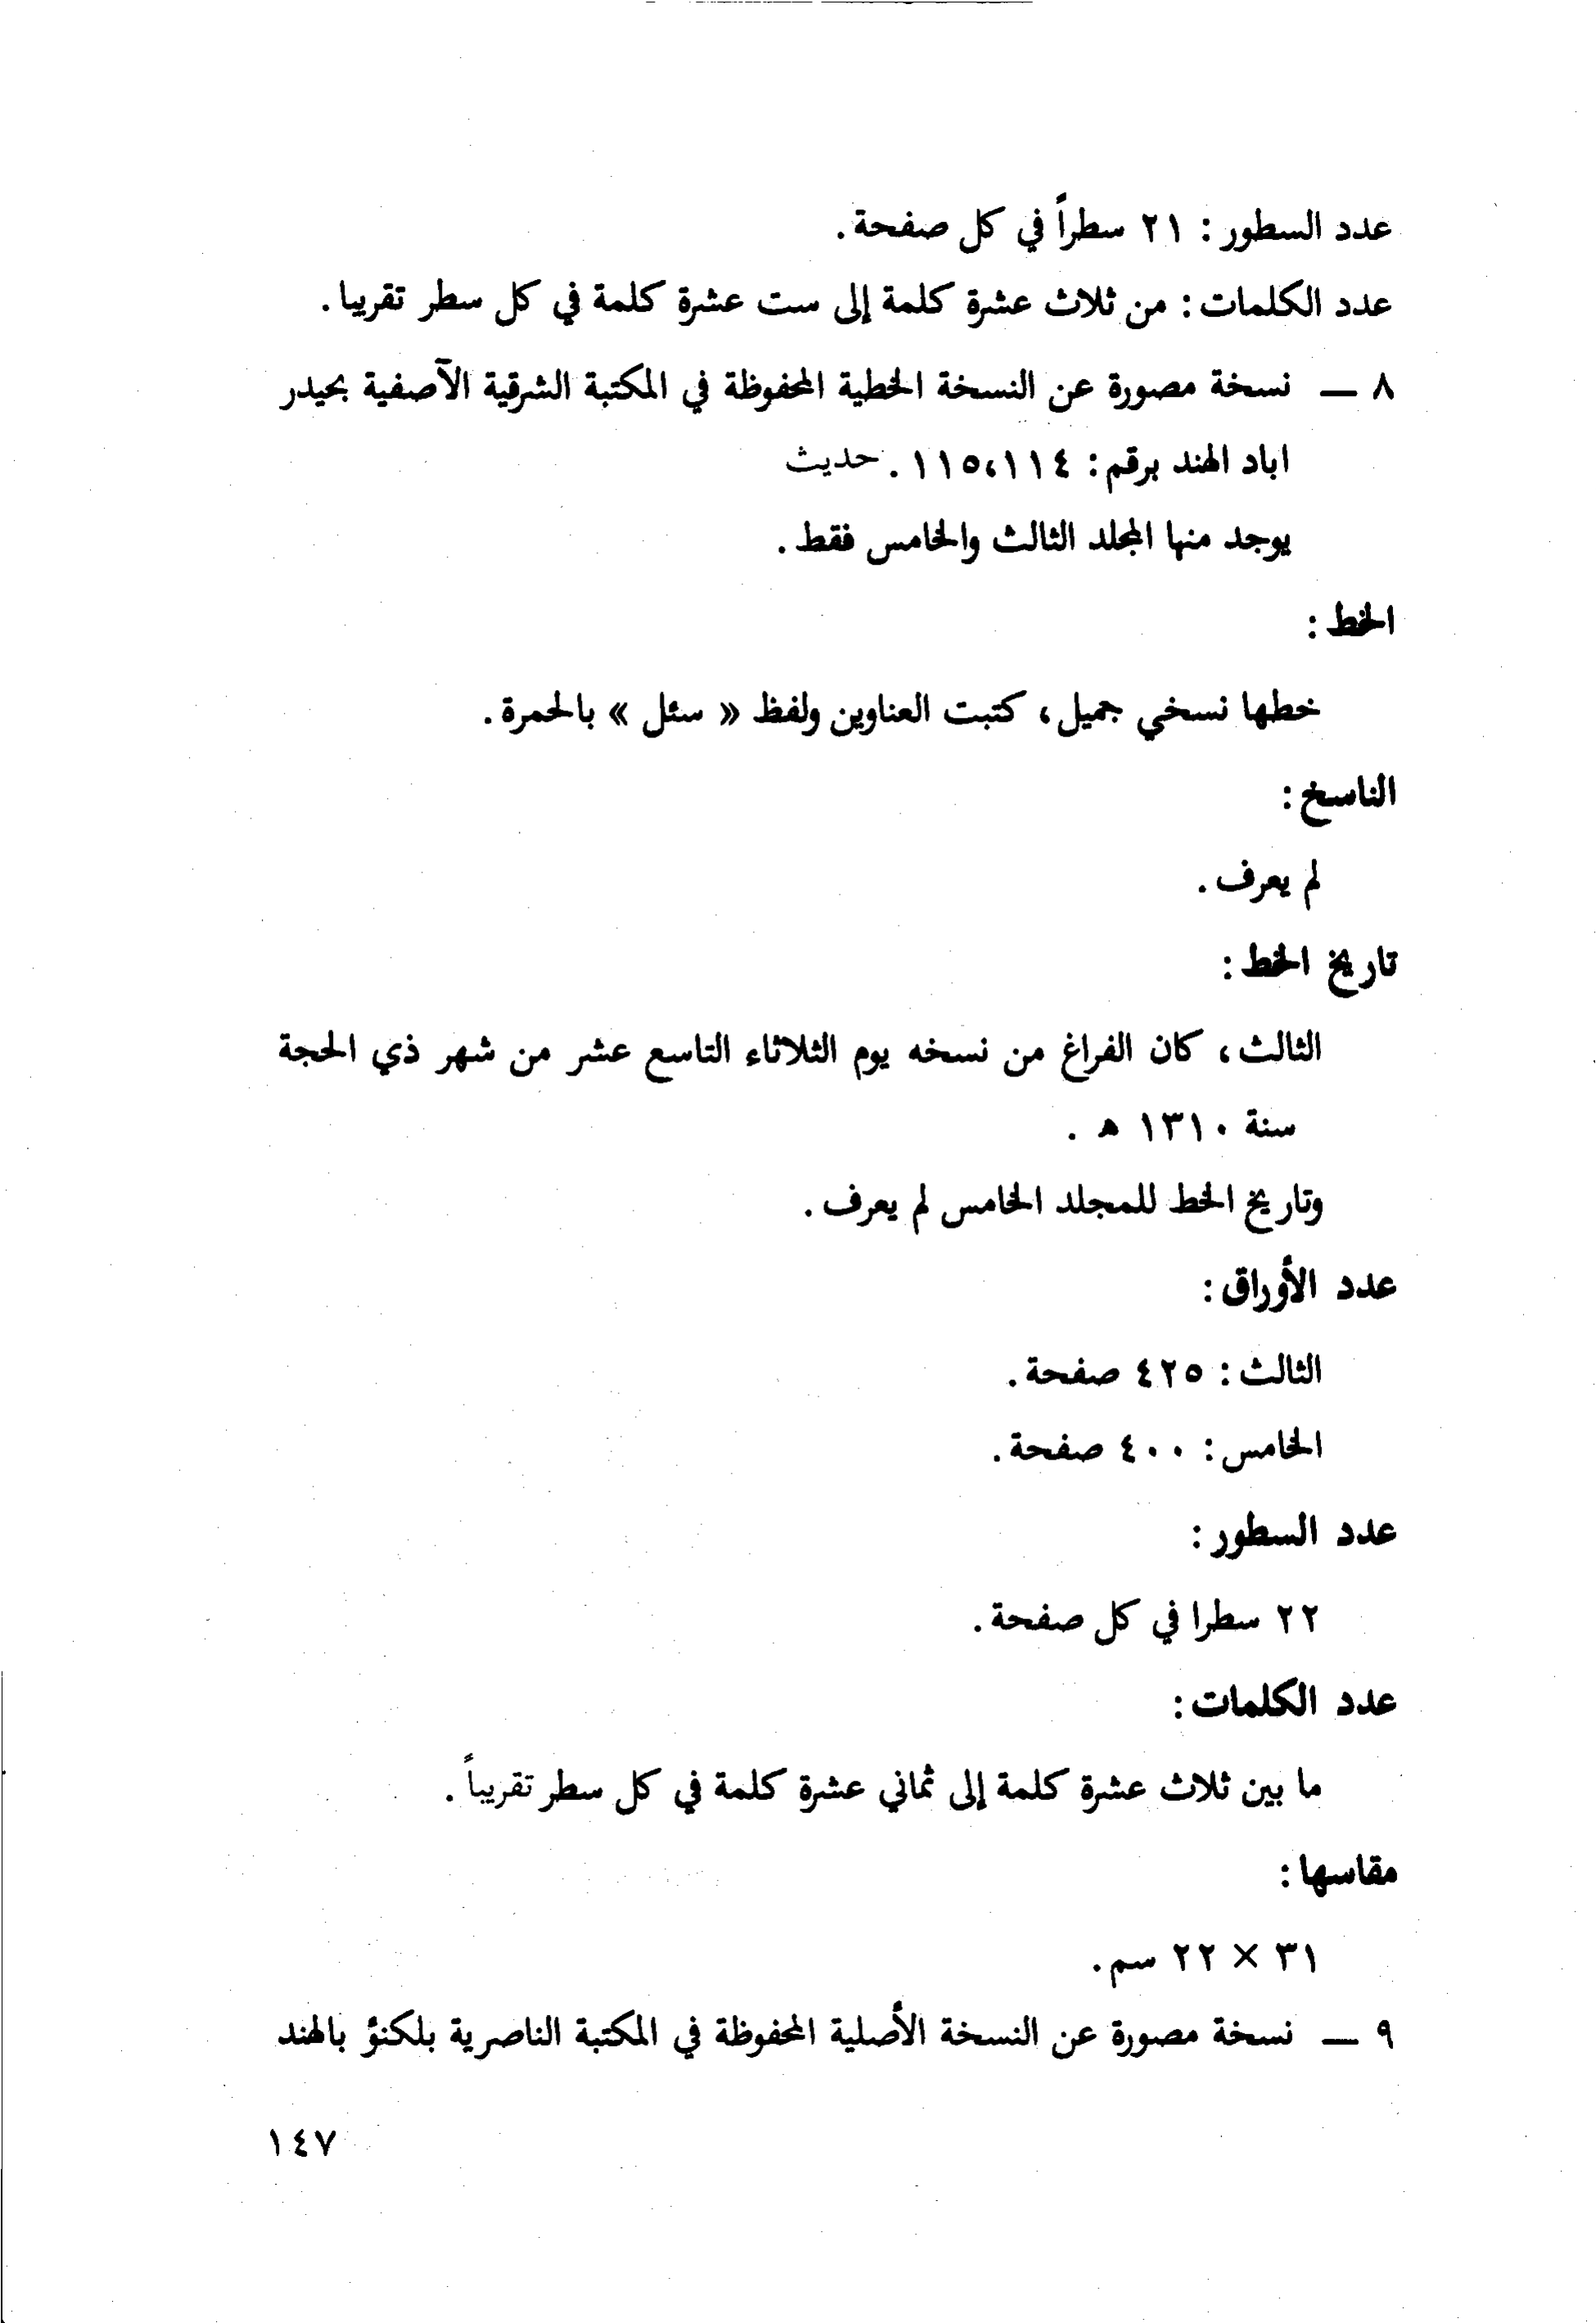 عدد السطور : ٢١ سطراً في كل صفحة .
عدد الكلمات : من ثلاث عشرة كلمة إلى ست عشرة كلمة في كل سطر تقريبا .
٨ — نسخة مصورة عن النسخة الخطية المحفوظة في المكتبة الشرقية الآصفية بحيدر
اباد الهند برقم : ١١٥،١١٤ . حديث
يوجد منها المجلد الثالث والخامس فقط .
الخط :
خطها نسخي جميل ، كتبت العناوين ولفظ « سئل » بالحمرة .
الناسخ :
لم يعرف .
تاريخ الخط :
الثالث ، كان الفراغ من نسخه يوم الثلاثاء التاسع عشر من شهر ذي الحجة
سنة ١٣١٠ ه .
وتاريخ الخط للمجلد الخامس لم يعرف .
عدد الأوراق :
الثالث : ٤٢٥ صفحة .
الخامس : ٤٠٠ صفحة .
عدد السطور :
٢٢ سطرا في كل صفحة .
عدد الكلمات :
ما بين ثلاث عشرة كلمة إلى ثماني عشرة كلمة في كل سطر تقريباً .
مقاسها :
٣١ × ٢٢ سم .
٩ — نسخة مصورة عن النسخة الأصلية المحفوظة في المكتبة الناصرية بلكنؤ بالهند
١٤٧